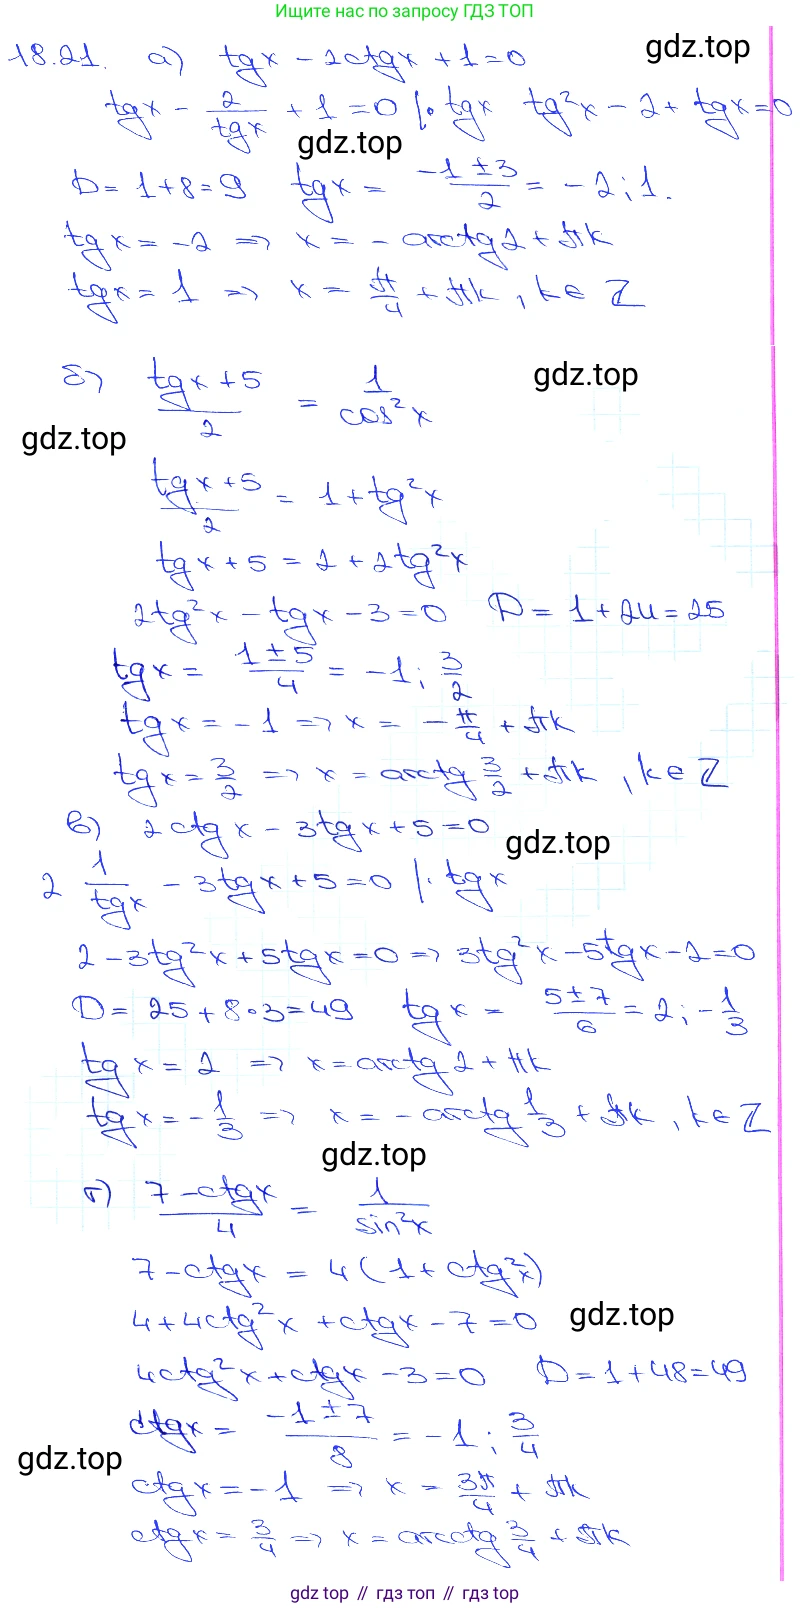 Ищите нас по запросу ГДЗ ТОП
18.21. а) tgx - 2ctgx + 1 = 0
gdz.top
tgx - 2/tgx + 1 = 0 |· tgx tg²x - 2 + tgx = 0
gdz.top
D = 1+8 = 9 tgx = (-1 ± 3)/2 = -2; 1.
tgx = -2 => x = -arctg2 + πk
tgx = 1 => x = π/4 + πk, k ∈ Z
б) (tgx + 5)/2 = 1/cos²x
gdz.top
gdz.top
(tgx + 5)/2 = 1 + tg²x
tgx + 5 = 2 + 2tg²x
2tg²x - tgx - 3 = 0 D = 1 + 24 = 25
tgx = (1 ± 5)/4 = -1; 3/2
tgx = -1 => x = -π/4 + πk
tgx = 3/2 => x = arctg 3/2 + πk, k ∈ Z
в) 2ctgx - 3tgx + 5 = 0
gdz.top
2 1/tgx - 3tgx + 5 = 0 |· tgx
2 - 3tg²x + 5tgx = 0 => 3tg²x - 5tgx - 2 = 0
D = 25 + 8·3 = 49 tgx = (5 ± 7)/6 = 2; -1/3
tgx = 2 => x = arctg2 + πk
tgx = -1/3 => x = -arctg 1/3 + πk, k ∈ Z
gdz.top
г) (7 - ctgx)/4 = 1/sin²x
7 - ctgx = 4(1 + ctg²x)
4 + 4ctg²x + ctgx - 7 = 0
gdz.top
4ctg²x + ctgx - 3 = 0 D = 1 + 48 = 49
ctgx = (-1 ± 7)/8 = -1; 3/4
gdz.top
ctgx = -1 => x = 3π/4 + πk
ctgx = 3/4 => x = arcctg 3/4 + πk
gdz top // гдз топ // gdz top